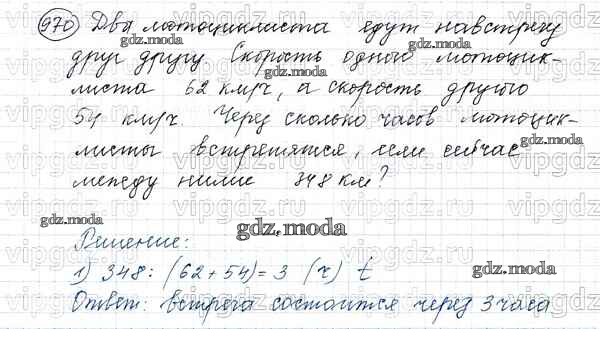 970 Два мотоциклиста едут навстречу
друг другу. Скорость одного мотоцик-
листа 62 км/ч, а скорость другого
54 км/ч. Через сколько часов мотоцик-
листы встретятся, если сейчас
между ними 348 км?
Решение:
1) 348 : (62 + 54) = 3 (ч) t
Ответ: встреча состоится через 3 часа
gdz.moda
gdz.moda
gdz.moda
gdz.moda
gdz.moda
gdz.moda
gdz.moda
gdz.moda
gdz.moda
vipgdz.ru